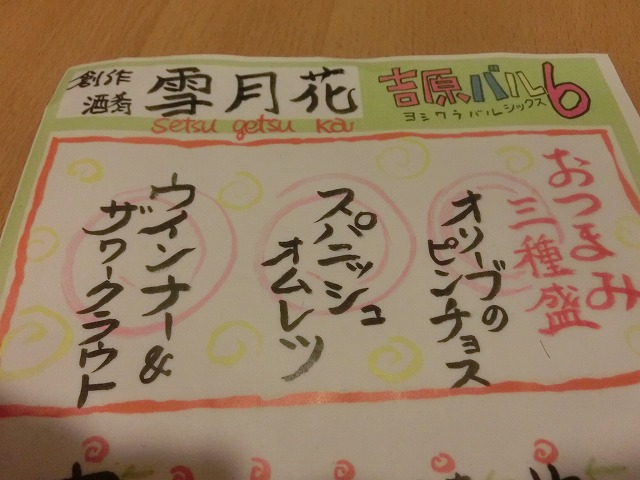 創作
酒肴
雪月花
setsu getsu kai
吉原バル6
ヨシワラバルシックス
おつまみ
三種盛
オリーブの
ピンチョス
スパニッシュ
オムレツ
ウインナー&
ザワークラウト